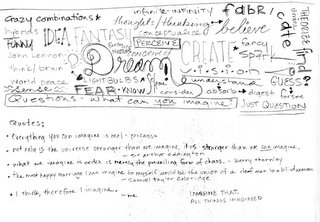 crazy combinations*
infinite infinity
fabri
cate
hybrids
FUNNY
IDEA
FANTASY
thought / thinking
conceptualize
believe
PERCEIVE
John Lennon
think / brain
world peace
sense
Dream!
CREATE
vision
fancy
find
LIGHTBULBS
understand
GUESS?
FEAR
KNOW
consider
absorb
digest
Questions - what can you imagine?
JUST QUESTION
Quotes:
• Everything you can imagine is real - picasso
• not only is the universe stranger than we imagine, it is stranger than we can imagine.
- sir arthur eddington
• what we imagine is order is merely the prevailing form of chaos. - Kerry Thornley
• the most happy marriage I can imagine to myself would be the union of a deaf man to a blind woman
- samuel taylor coleridge
• I think, therefore I imagine. - me
IMAGINE THAT.
ALL THINGS IMAGINED